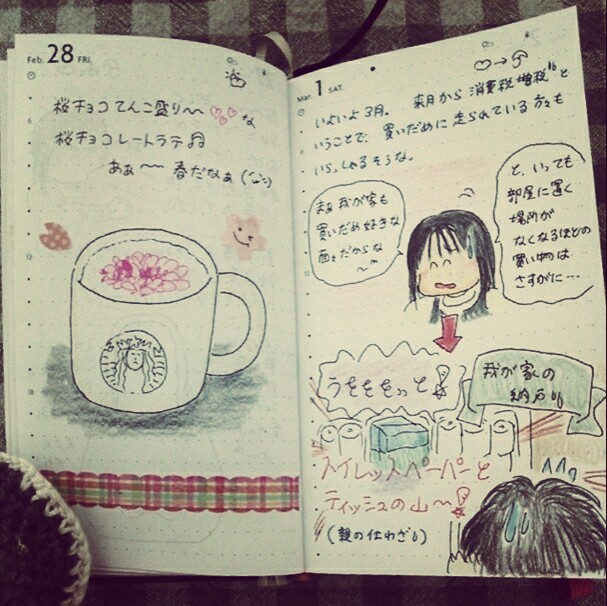 Feb. 28 FRI.
桜チョコてんこ盛り〜♡♡♡な
桜チョコレートラテ♫
あぁ〜〜春だなぁ
Mar. 1 SAT.
いよいよ3月。来月から消費税増税と
いうことで、買いだめに走られている方々も
いらっしゃるそうな。
まぁ我が家も
買いだめ好きな
面々だからな
〜〜
と、いっても
部屋に置く
場所が
なくなるほどの
買い物は
さすがに…
うををををっと
我が家の
納戸
トイレットペーパーと
ティッシュの山〜
(親の仕わざ)